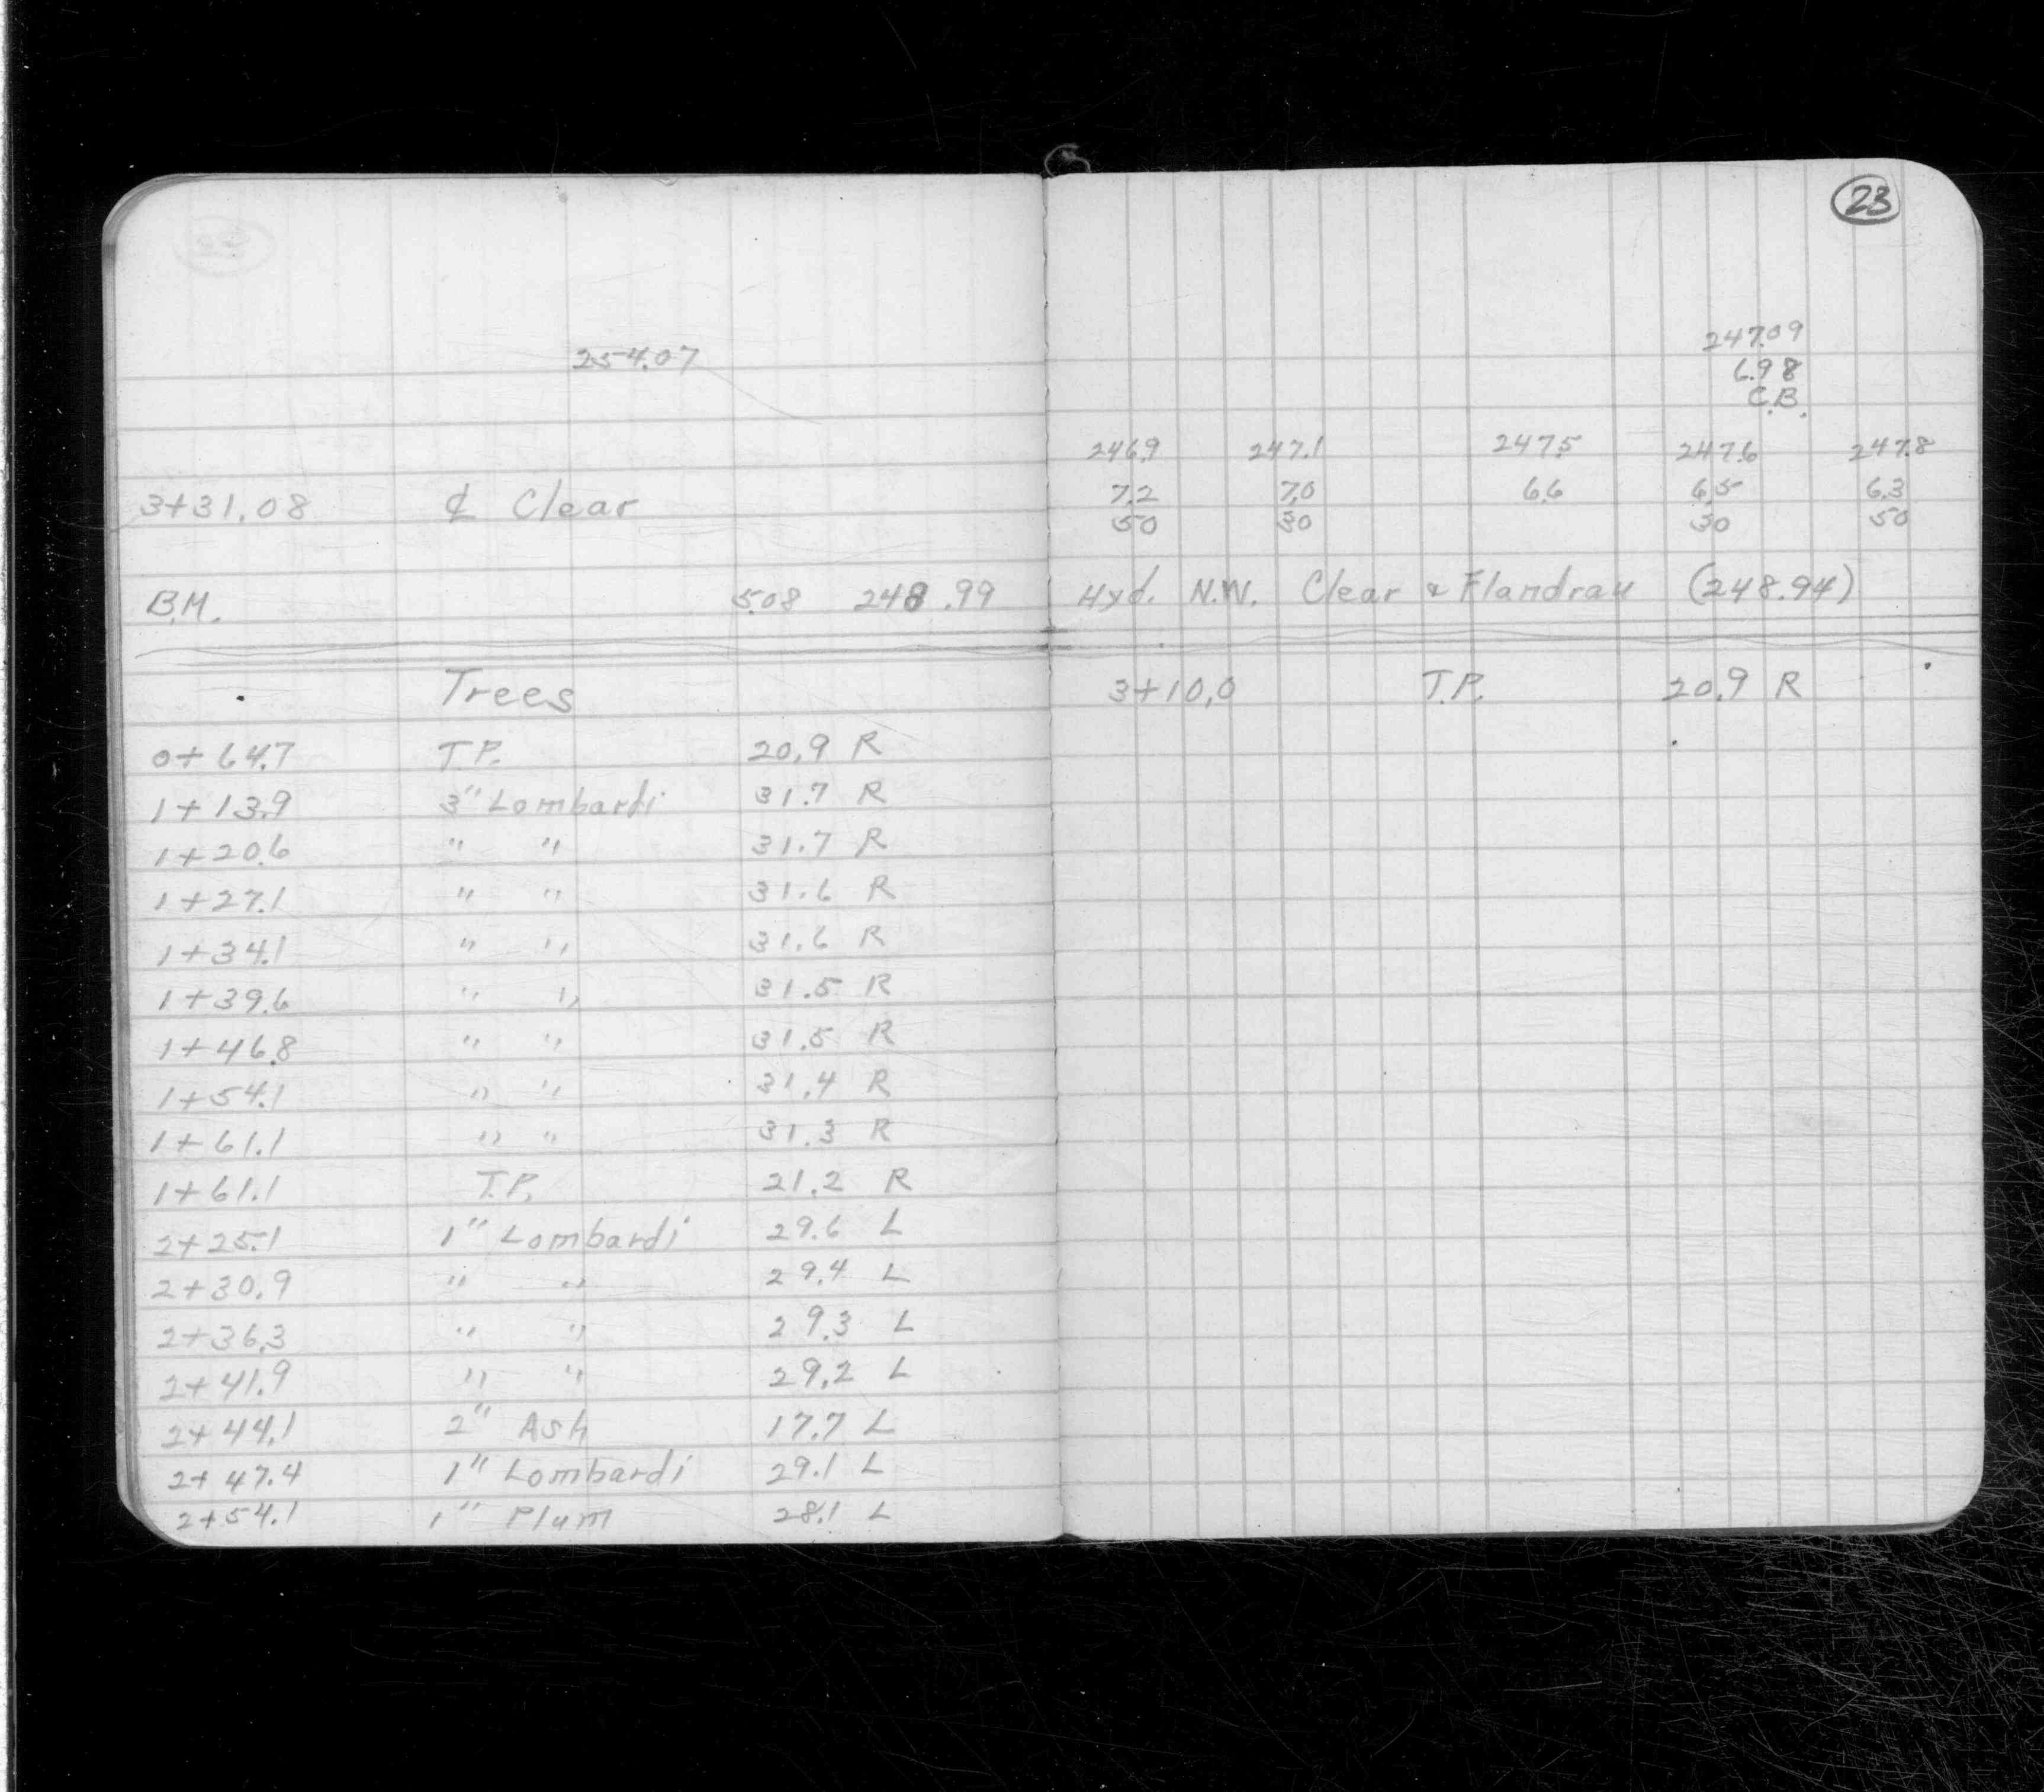 23
254.07
247.09
6.98
C.B.
246.9 247.1 247.5 247.6 247.8
3+31.08 ℄ Clear 7.2 7.0 6.6 6.5 6.3
50 30 30 50
B.M. 5.08 248.99 Hyd. N.W. Clear & Flandrau (248.94)
Trees 3+10.0 T.P. 20.9 R
0+64.7 T.P. 20.9 R
1+13.9 3" Lombardi 31.7 R
1+20.6 " " 31.7 R
1+27.1 " " 31.6 R
1+34.1 " " 31.6 R
1+39.6 " " 31.5 R
1+46.8 " " 31.5 R
1+54.1 " " 31.4 R
1+61.1 " " 31.3 R
1+61.1 T.P. 21.2 R
2+25.1 1" Lombardi 29.6 L
2+30.9 " " 29.4 L
2+36.3 " " 29.3 L
2+41.9 " " 29.2 L
2+44.1 2" Ash 17.7 L
2+47.4 1" Lombardi 29.1 L
2+54.1 1" Plum 28.1 L